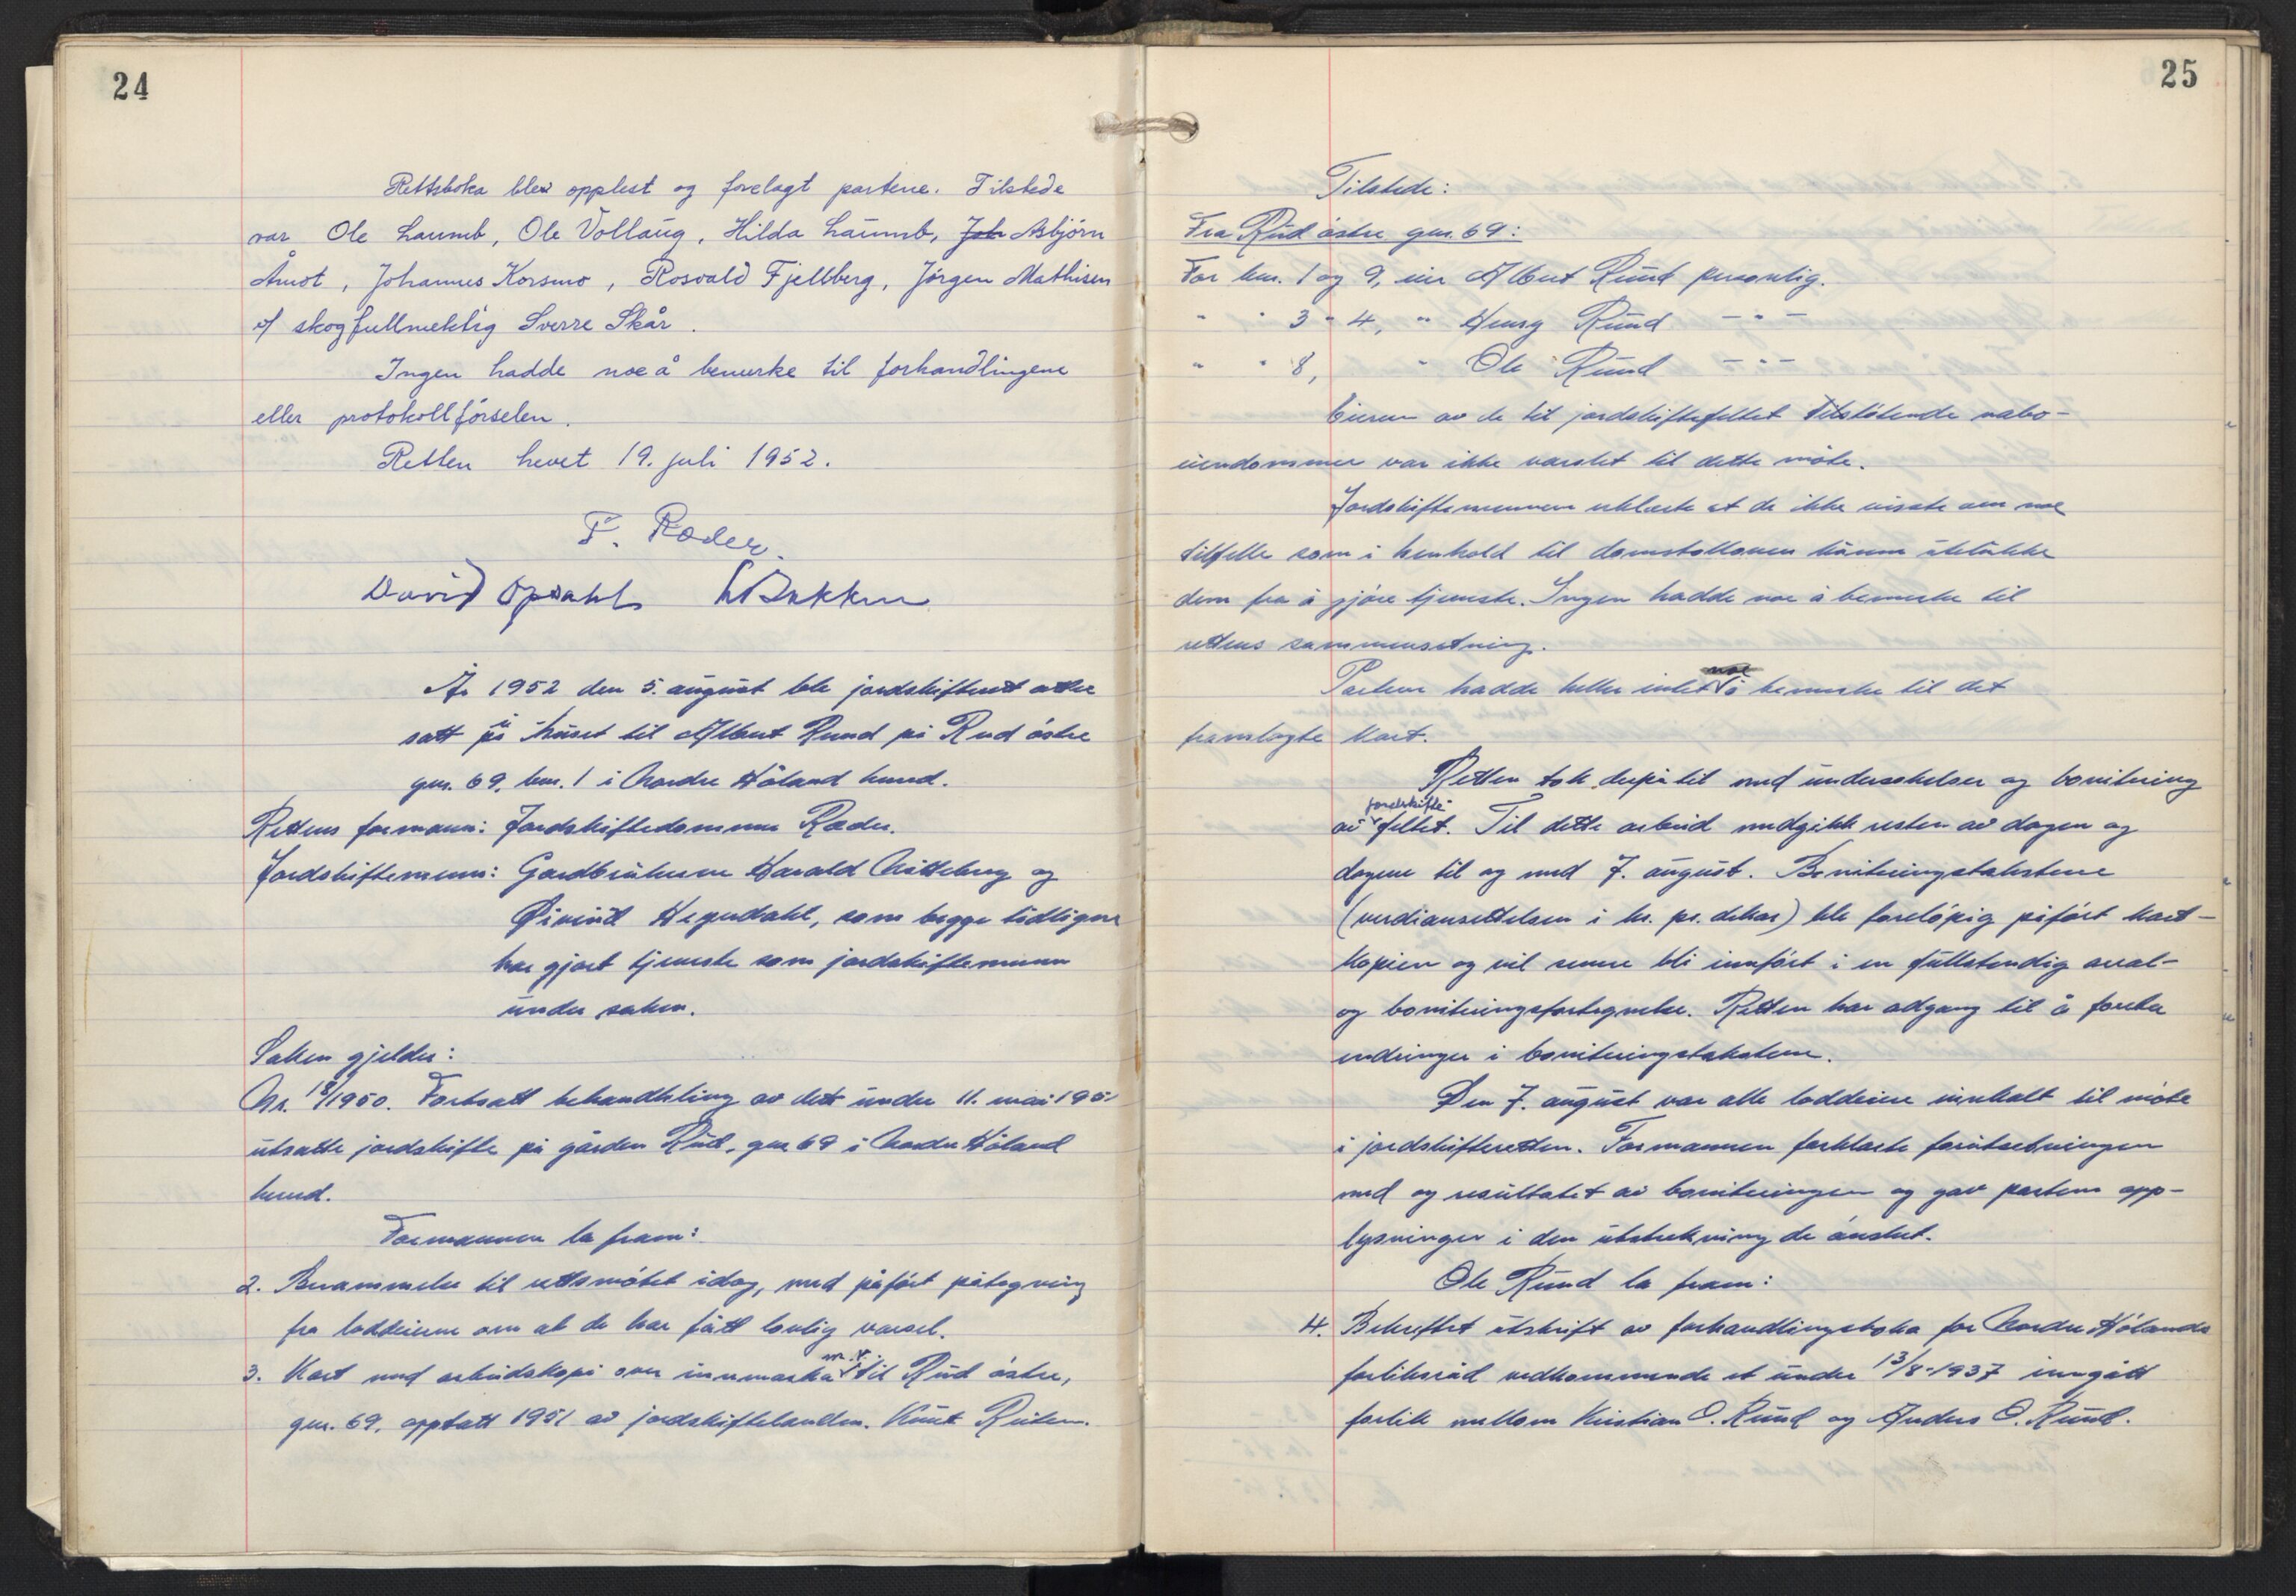 24
Rettsboka blei opplest og forelagt partene. Tilstede
var Ole Laumb, Ole Vollaug, Hilda Laumb, Joh Asbjörn
Åmot, Johannes Korsmo, Rosvald Fjellberg, Jörgen Mathisen
v/ skogfullmektig Sverre Skår.
Ingen hadde noe å bemerke til forhandlingene
eller protokollförselen.
Retten hevet 19. juli 1952.
F. Ræder.
David Opdahl
År 1952 den 5. august ble jordskifterett atter
satt på i huset til Albert Ruud på Rud östre
gnr. 69, bnr. 1 i Nordre Höland herred.
Rettens formann: Jordskiftedommer Ræder.
Jordskiftemenn: Gardbrukerne Harald Nitteberg og
Øivind Hegredahl, som begge tidligere
har gjort tjeneste som jordskiftemenn
under saken.
Saken gjelder:
Nr. 18/1950. Fortsatt behandling av det under 11. mai 195
utsatte jordskifte på gården Rud, gnr 69 i Nordre Höland
herred.
Formannen la fram:
2. Berammelse til rettsmötet idag, med påfört påtegning
fra loddeierne om at de har fått lovlig varsel.
3. Kart med arbeidskopi over innmarka m.v. til Rud östre,
gnr. 69, opptatt 1951 av jordskiftekand. Knut
25
Tilstede:
Fra Rud östre gnr. 69:
For bnr. 1 og 9, eier Albert Ruud personlig.
" " 3 " 4, " Henry Ruud - " -
" " 8, " Ole Ruud - " -
Eieren av de til jordskiftefeltet tilstötende nabo-
eiendommer var ikke varslet til dette möte.
Jordskiftemennene erklærte at de ikke visste om noe
tilfelle som i henhold til domstolloven kunne utelukke
dem fra å gjöre tjeneste. Ingen hadde noe å bemerke til
rettens sammensetning.
Partene hadde heller intet å bemerke til det
framlagte kart.
Retten tok derpå til med undersökelser og bonitering
av jordskifte- feltet. Til dette arbeid medgikk resten av dagen og
dagene til og med 7. august. Boniteringstakstene
(verdiansettelsen i kr. pr. dekar) ble forelöpig påfört kart-
kopien og vil senere bli innfört i en fullstendig areal-
og boniteringsfortegnelse. Retten har adgang til å foreta
endringer i boniteringstakstene.
Den 7. august var alle loddeiere innkalt til möte
i jordskifteretten. Formannen forklarte forutsetningen
med og resultatet av boniteringen og gav partene opp-
lysninger i den utstrekning de önsket.
Ole Ruud la fram:
4. Bekreftet utskrift av forhandlingsboka for Nordre Hölands
forliksråd vedkommende et under 13/8-1937 inngått
forlik mellom Kristian O. Ruud og Anders O. Ruud.